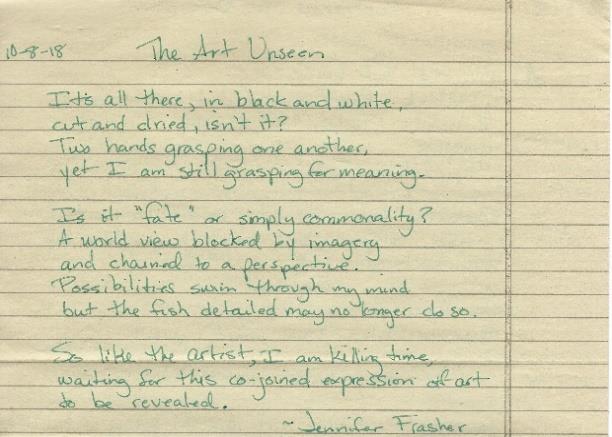 10-8-18 The Art Unseen
It's all there, in black and white,
cut and dried, isn't it?
Two hands grasping one another,
yet I am still grasping for meaning.
Is it "fate" or simply commonality?
A world view blocked by imagery
and chained to a perspective.
Possibilities swim through my mind
but the fish detailed may no longer do so.
So like the artist, I am killing time,
waiting for this co-joined expression of art
to be revealed.
~Jennifer Frasher